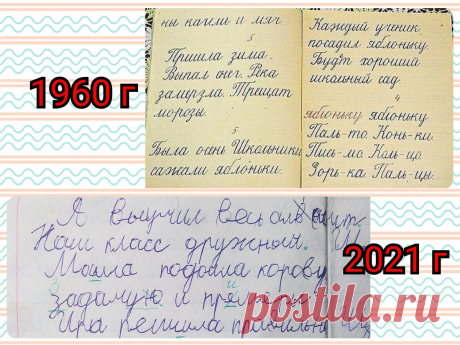 1960 г
ны качели и мяч.
5
Пришла зима.
Выпал снег. Река
замёрзла. Трещат
морозы.
5
Была осень. Школьники
сажали яблоньки.
Каждый ученик
посадил яблоньку.
Будет хороший
школьный сад.
4
яблоньку яблоньку
Паль-то. Конь-ки.
Пись-мо. Коль-цо.
Зорь-ка. Паль-цы.
2021 г
Я выучил весь
Наш класс дружный.
подоила корову
и
Ира решила
postila.ru